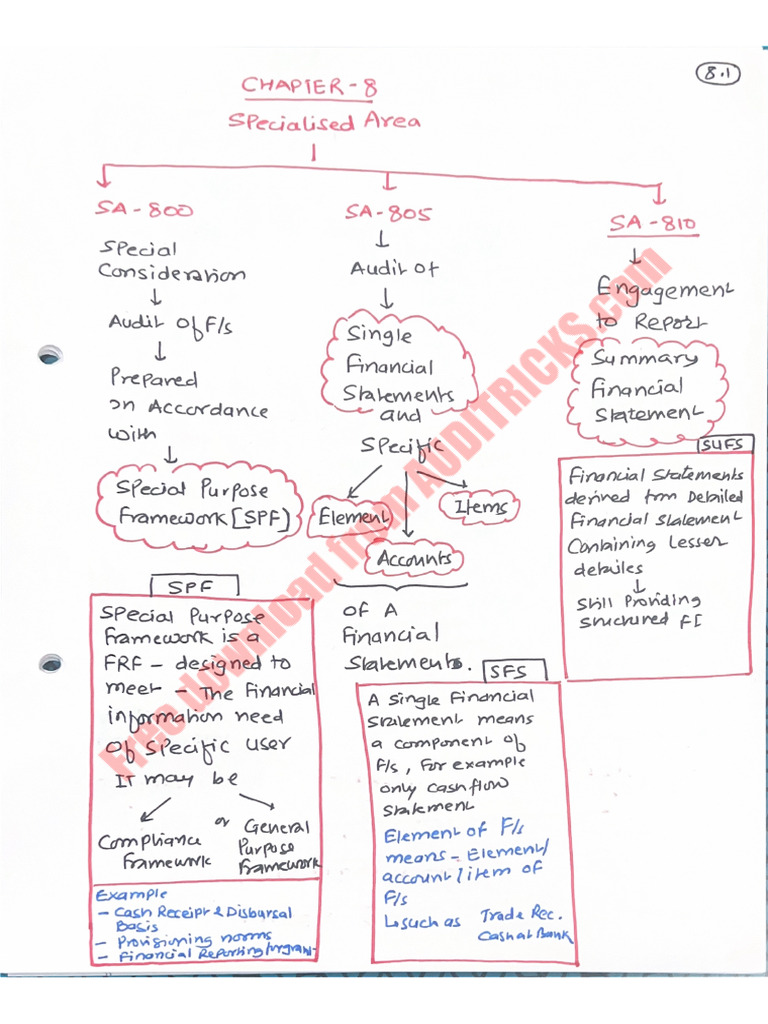 8.1
CHAPTER-8
Specialised Area
SA-800
Special
Consideration
Audit of F/s
Prepared
in Accordance
with
Special Purpose
Framework [SPF]
SPF
Special Purpose
framework is a
FRF - designed to
meet - The financial
information need
of specific user
It may be
Compliance
framework
or
General
Purpose
framework
Example
- Cash Receipt & Disbursal
Basis
- Provisioning norms
- Financial Reporting
SA-805
Audit of
Single
Financial
Statements
and
Specific
Element
Accounts
Items
of A
Financial
Statements.
SFS
A single financial
statement means
a component of
F/s, For example
only cashflow
statement
Element of F/s
means - Element/
account/item of
F/s
such as Trade Rec.
Cash at Bank
SA-810
Engagement
to Report
Summary
Financial
Statement
SUFS
Financial Statements
derived from Detailed
financial statement
Containing Lesser
detailes
Still Providing
structured FI
Free download from AUDITRICKS.com